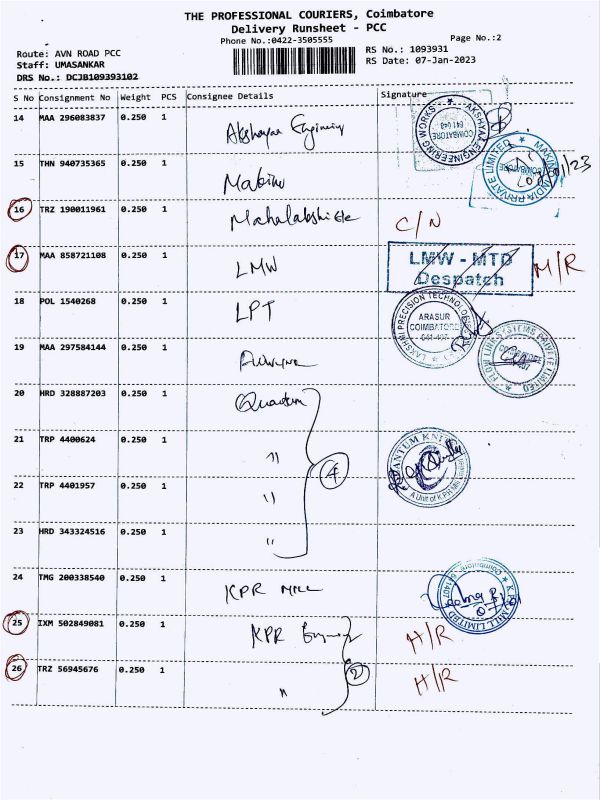 THE PROFESSIONAL COURIERS, Coimbatore
Delivery Runsheet - PCC
Phone No.:0422-3505555
Page No.:2
Route: AVN ROAD PCC
RS No.: 1093931
Staff: UMASANKAR
RS Date: 07-Jan-2023
DRS No.: DCJB109393102
S No Consignment No Weight PCS Consignee Details Signature
14 MAA 296083837 0.250 1
AKSHYAA ENGINEERING WORKS
COIMBATORE
641 048
15 THN 940735365 0.250 1
PRIVATE LIMITED
16 TRZ 190011961 0.250 1 C/N
17 MAA 858721108 0.250 1 LMW M/R
LMW - MTD
Despatch
18 POL 1540268 0.250 1 LPT
LAKSHMI PRECISION TECHNOLOGIES
ARASUR
COIMBATORE
641-407
19 MAA 297584144 0.250 1
FLOW LINK SYSTEMS PRIVATE LIMITED
20 HRD 328887203 0.250 1 Quantum
21 TRP 4400624 0.250 1 "
4
QUANTUM KNITS
A Unit of K.P.R Mill Limited
22 TRP 4401957 0.250 1 "
23 HRD 343324516 0.250 1 "
24 TMG 200338540 0.250 1 KPR MILL
K.P.R. MILL LIMITED
25 IXM 502849081 0.250 1 KPR H/R
26 TRZ 56945676 0.250 1 " H/R
2